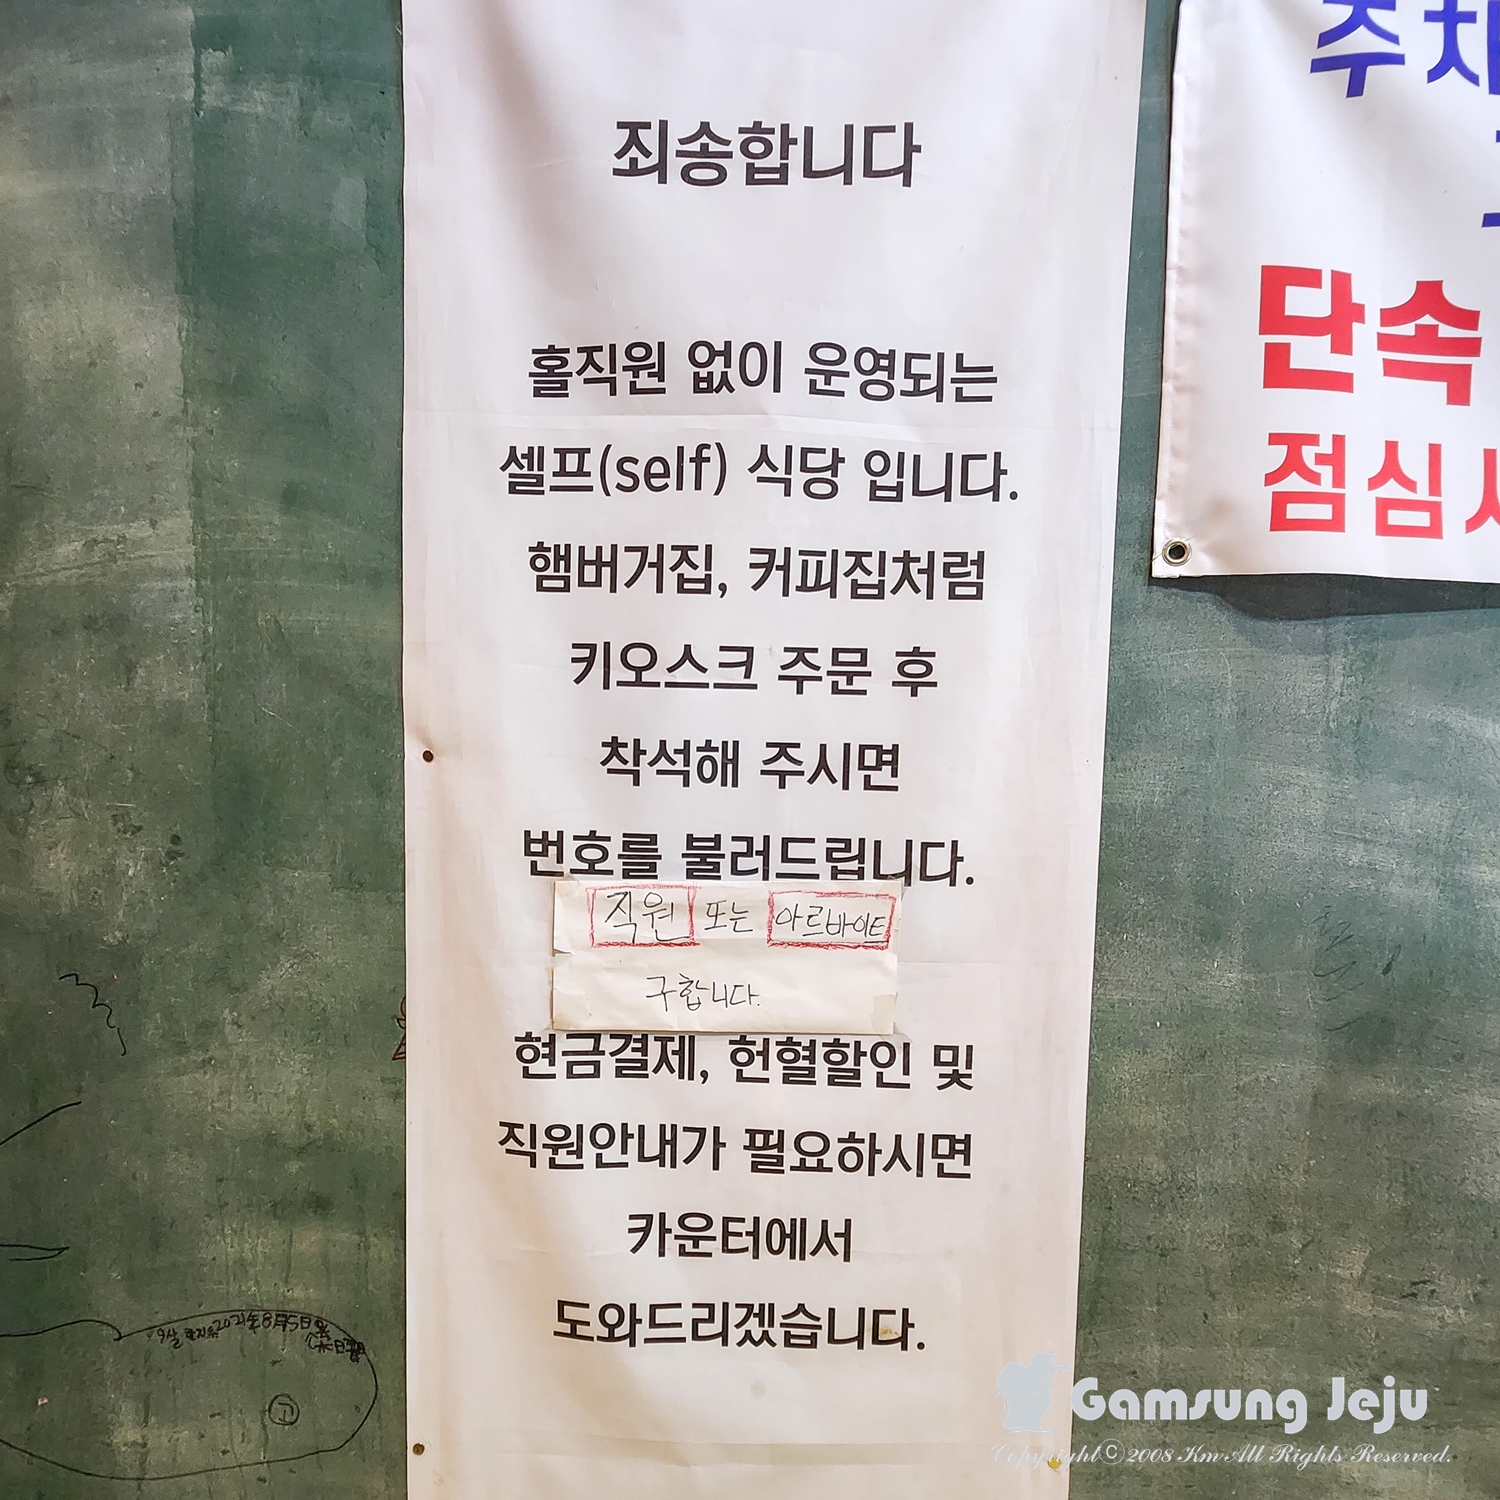 죄송합니다
홀직원 없이 운영되는
셀프(self) 식당 입니다.
햄버거집, 커피집처럼
키오스크 주문 후
착석해 주시면
번호를 불러드립니다.
직원 또는 아르바이트
구합니다.
현금결제, 헌혈할인 및
직원안내가 필요하시면
카운터에서
도와드리겠습니다.
단속
점심
Gamsung Jeju
Copyright ⓒ 2008 Km All Rights Reserved.